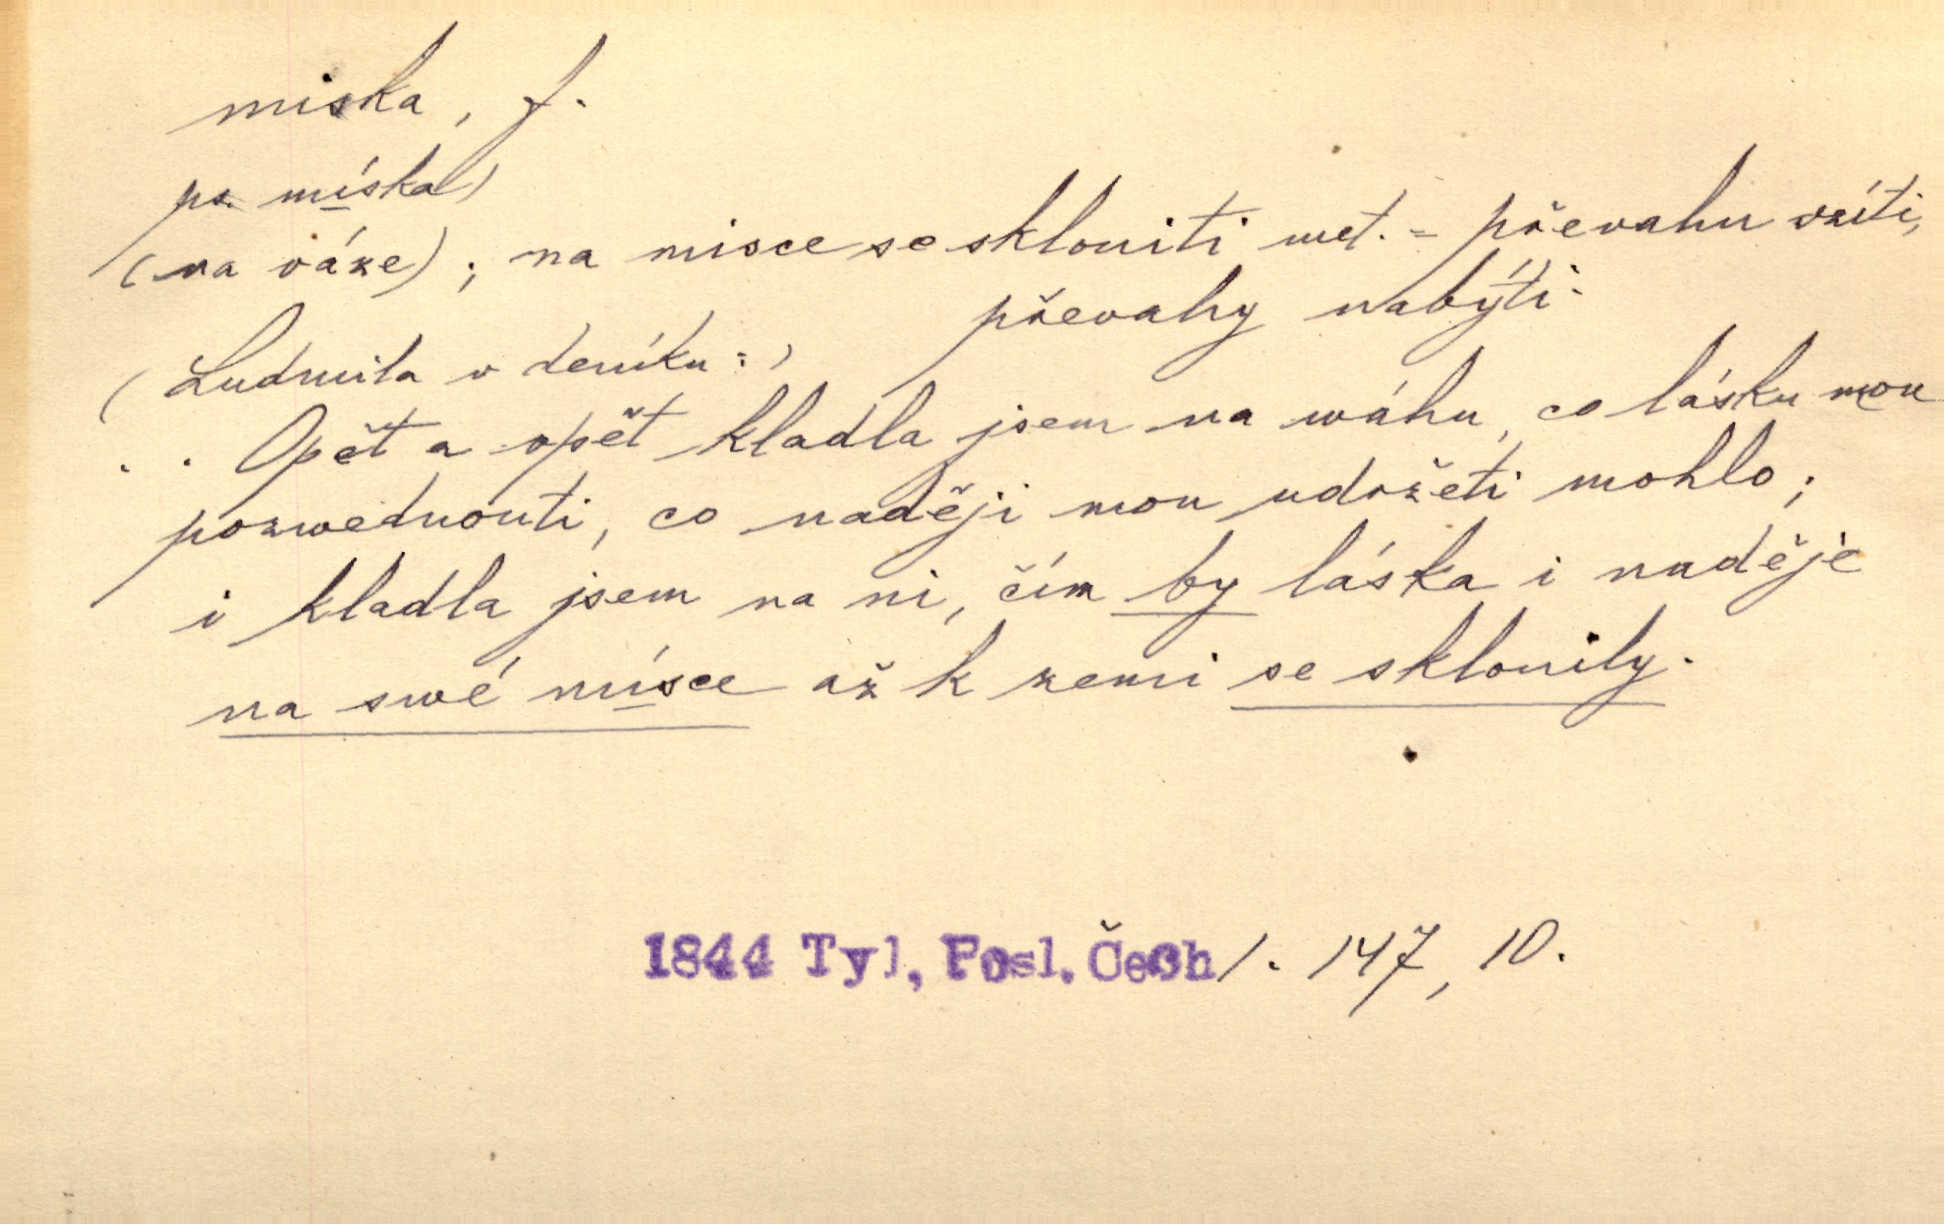 miska, f.
ps. míska)
(na váze); na misce se skloniti met. = převahu vzíti,
převahy nabýti.
(Ludmila v deníku:)
. . Opět a opět kladla jsem na wáhu, co lásku mou
pozwednouti, co naději mou udržeti mohlo;
i kladla jsem na ni, čím by láska i naděje
na swé mísce až k zemi se sklonily.
1844 Tyl, Posl. Čech 1. 147, 10.